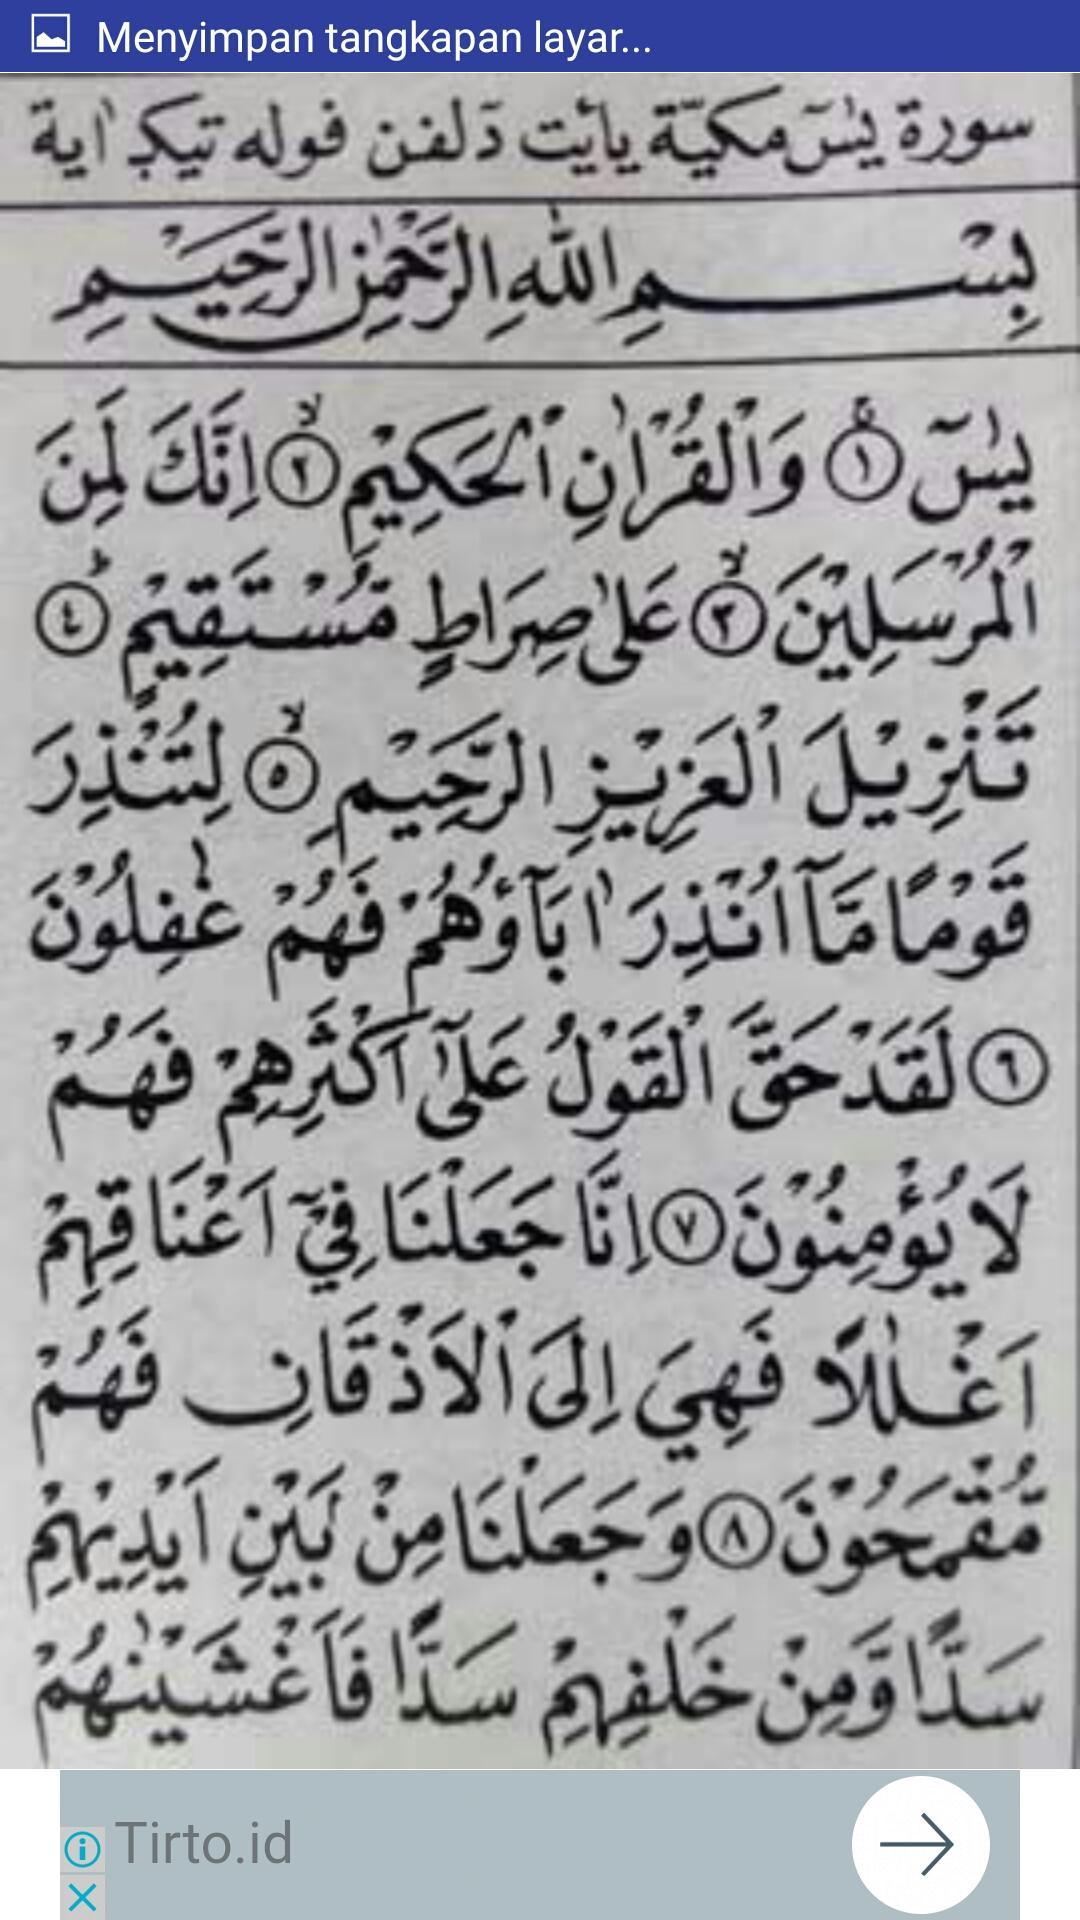 Menyimpan tangkapan layar...
سورة يٰسٓ مكيّة يأيت دلفن فوله تيݢ اية
بِسْمِ اللّٰهِ الرَّحْمٰنِ الرَّحِيْمِ
يٰسٓ ١ وَالْقُرْاٰنِ الْحَكِيْمِ ٢ اِنَّكَ لَمِنَ
الْمُرْسَلِيْنَ ٣ عَلٰى صِرَاطٍ مُّسْتَقِيْمٍ ٤
تَنْزِيْلَ الْعَزِيْزِ الرَّحِيْمِ ٥ لِتُنْذِرَ
قَوْمًا مَّآ اُنْذِرَ اٰبَآؤُهُمْ فَهُمْ غٰفِلُوْنَ
٦ لَقَدْ حَقَّ الْقَوْلُ عَلٰٓى اَكْثَرِهِمْ فَهُمْ
لَا يُؤْمِنُوْنَ ٧ اِنَّا جَعَلْنَا فِيْٓ اَعْنَاقِهِمْ
اَغْلٰلًا فَهِيَ اِلَى الْاَذْقَانِ فَهُمْ
مُّقْمَحُوْنَ ٨ وَجَعَلْنَا مِنْ بَيْنِ اَيْدِيْهِمْ
سَدًّا وَّمِنْ خَلْفِهِمْ سَدًّا فَاَغْشَيْنٰهُمْ
Tirto.id